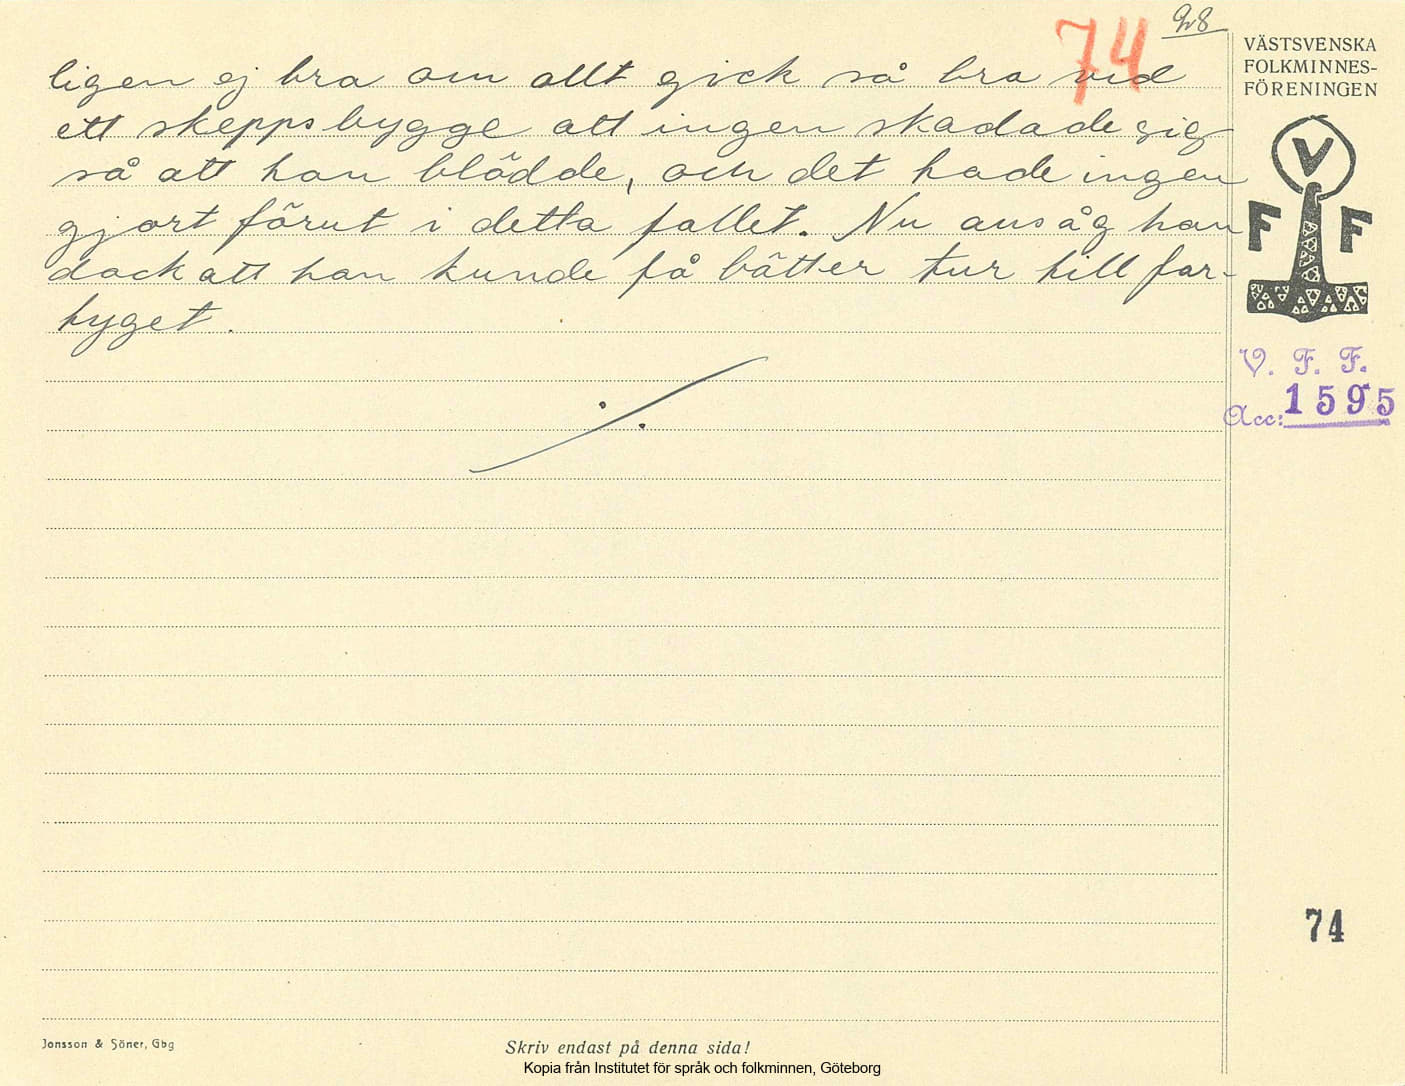 98
74
ligen ej bra om allt gick så bra vid
ett skeppsbygge att ingen skadade sig
så att han blödde, och det hade ingen
gjort förut i detta fallet. Nu ansåg han
dock att han kunde få bätter tur till far-
tyget.
VÄSTSVENSKA
FOLKMINNES-
FÖRENINGEN
V
F F
V. F. F.
Acc: 1595
74
Jonsson & Söner, Gbg
Skriv endast på denna sida!
Kopia från Institutet för språk och folkminnen, Göteborg